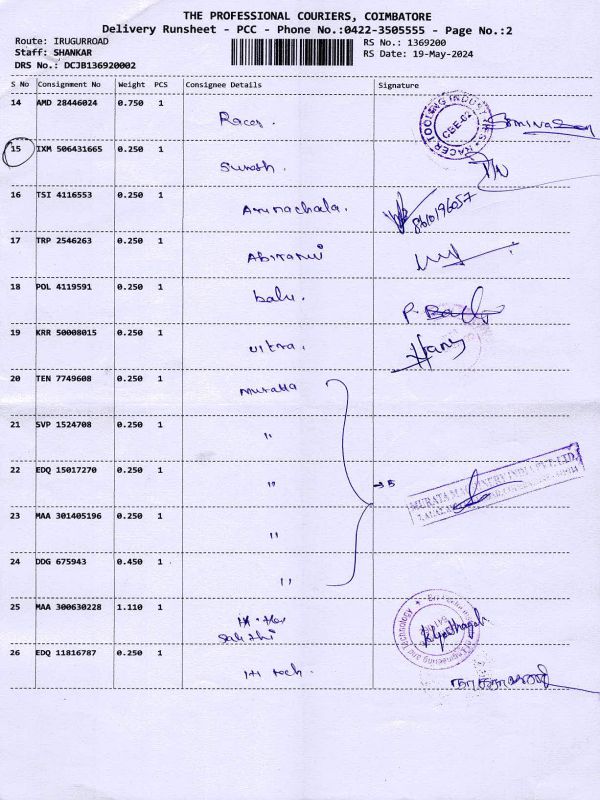 THE PROFESSIONAL COURIERS, COIMBATORE
Delivery Runsheet - PCC - Phone No.:0422-3505555 - Page No.:2
Route: IRUGURROAD RS No.: 1369200
Staff: SHANKAR RS Date: 19-May-2024
DRS No.: DCJB136920002
S No Consignment No Weight PCS Consignee Details Signature
14 AMD 28446024 0.750 1
Racer.
15 IXM 506431665 0.250 1
Suresh.
16 TSI 4116553 0.250 1
Arunachala. 8610196057
17 TRP 2546263 0.250 1
Abirami
18 POL 4119591 0.250 1
balu. P. Balu
19 KRR 50008015 0.250 1
Ultra. Hary
20 TEN 7749608 0.250 1
Muratta
21 SVP 1524708 0.250 1
"
22 EDQ 15017270 0.250 1
" → 5
MURATA MACHINERY INDIA PVT. LTD.
23 MAA 301405196 0.250 1
"
24 DDG 675943 0.450 1
"
25 MAA 300630228 1.110 1
Sakthi
26 EDQ 11816787 0.250 1
Hi tech.
RACER TOOLING INDUSTRIES
CBE-62
Engineering and Technology